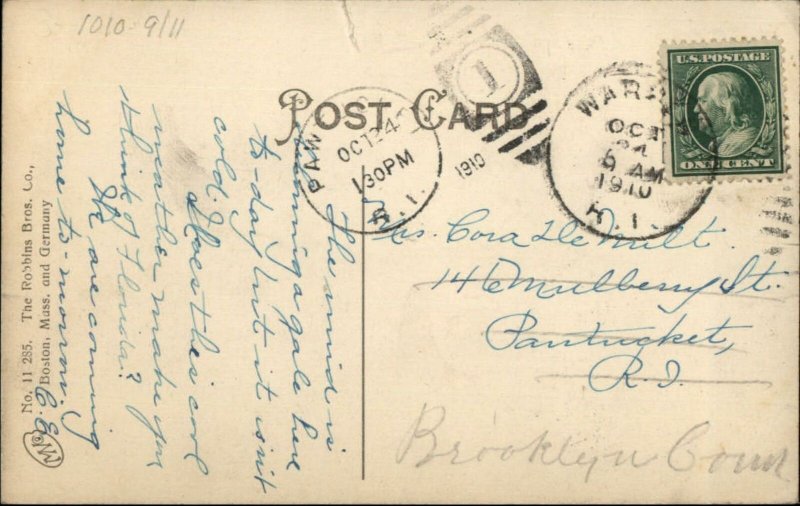 1010-9/11
POST CARD
PAW
OCT 24
1 30 PM
1910
R. I.
1
WAR
OCT
24
9 AM
1910
R. I.
U.S. POSTAGE
ONE CENT
The wind is
running a gale here
to-day but it isn't
cold. Does this cool
weather make you
think of Florida?
We are coming
home to-morrow.
C. E.
Mrs. Cora DeWilt.
146 Mulberry St.
Pawtucket,
R. I.
Brooklyn Conn
No. 11 285. The Robbins Bros. Co.,
Boston, Mass. and Germany